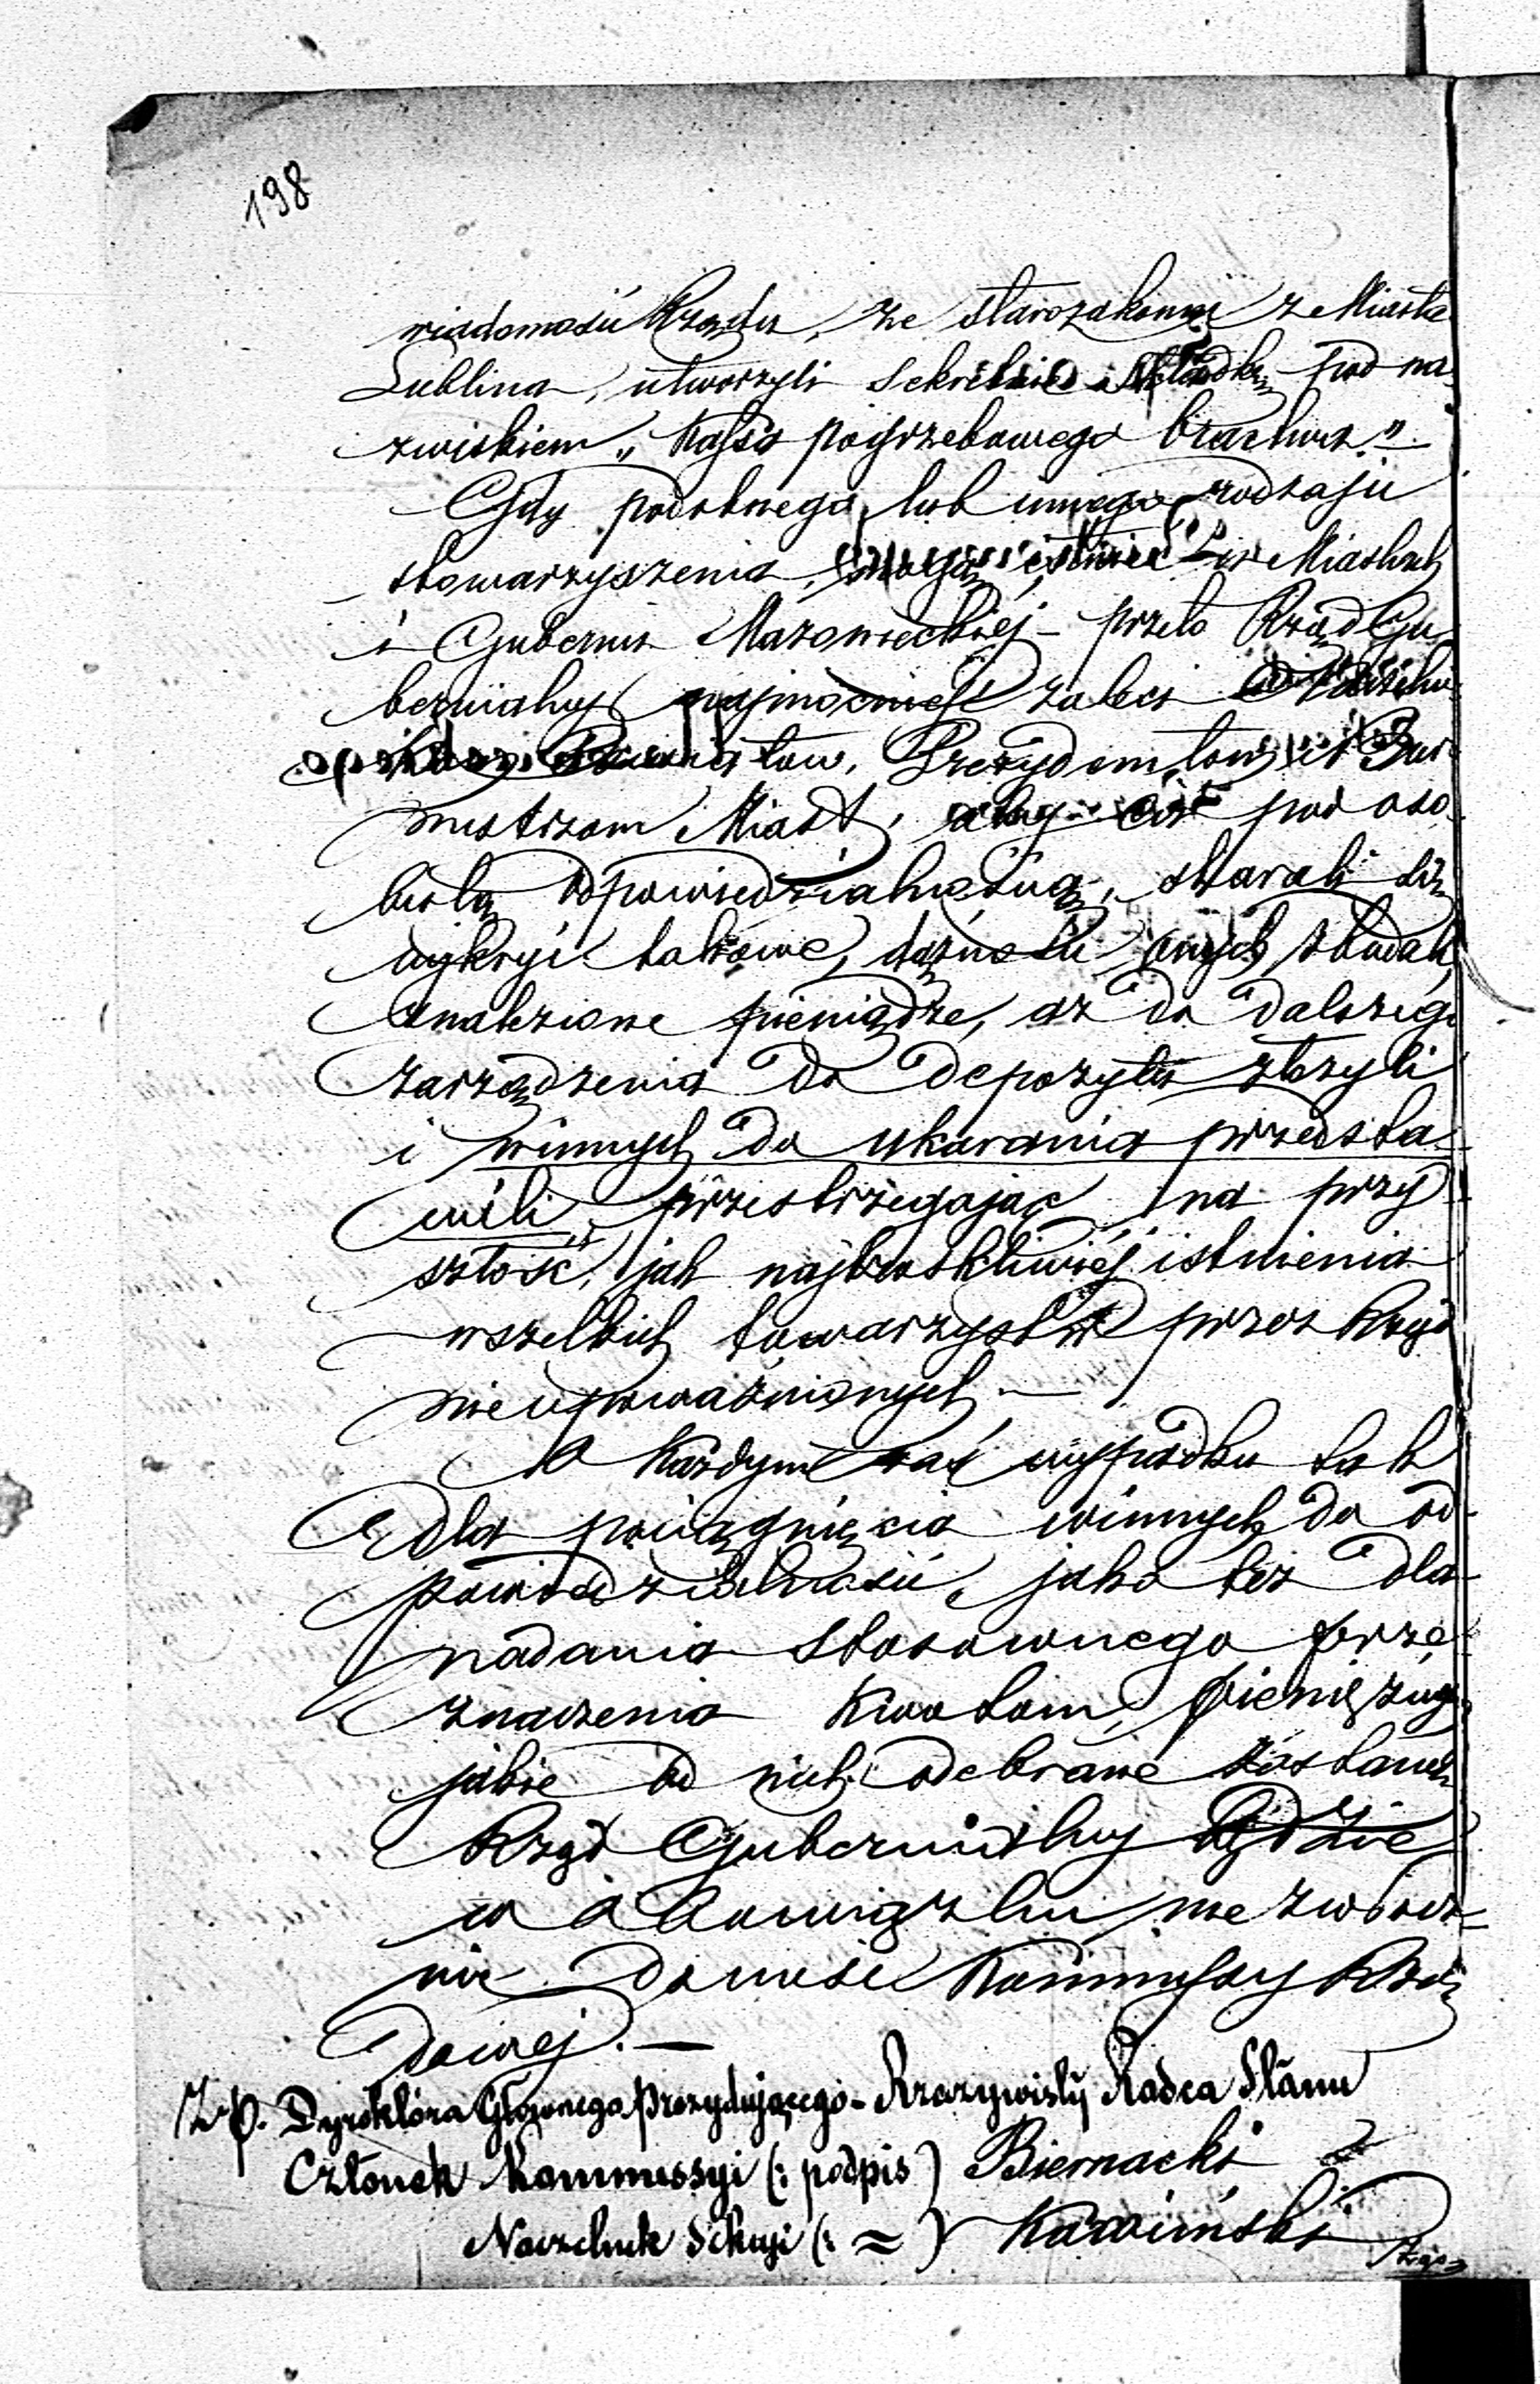 198
wiadomości Rządu, że starozakonni z Miasta
Lublina, utworzyli sekretnie składkę pod na-
zwiskiem „Kassa pogrzebowego bractwa”.
Gdy podobnego lub innego rodzaju
stowarzyszenia, mogą istnieć i w Miastach
i Gubernii Mazowieckiéj – przeto Rząd Gu-
bernialny najmocniéj zaleci
Prezydentom i Bur-
mistrzom Miast, aby ciż pod oso-
bistą odpowiedzialnością, starali się
wykryć takowe, dążność onych zbadali,
znalezione pieniądze, aż do dalszego
zarządzenia do depozytu złożyli
i winnych do ukarania przedsta-
wili, przestrzegając na przy-
szłość, jak najtroskliwiéj istnienia
wszelkich towarzystw przez Rząd
nieupoważnionych. —
W każdym zaś wypadku tak
dla pociągnięcia winnych do od-
powiedzialności, jako też dla
nadania stosownego prze-
znaczenia kwotom pieniężnym
jakie od nich odebrane zostaną
Rząd Gubernialny będzie
w obowiązku niezwłocz-
nie donieść Kommissyi Rzą-
dowéj. —
Z p. Dyrektóra Głównego Prezydującego – Rzeczywisty Radca Stanu
Członek Kommissyi (: podpis) Biernacki
Naczelnik Sekcyi (: = ) Kamiński